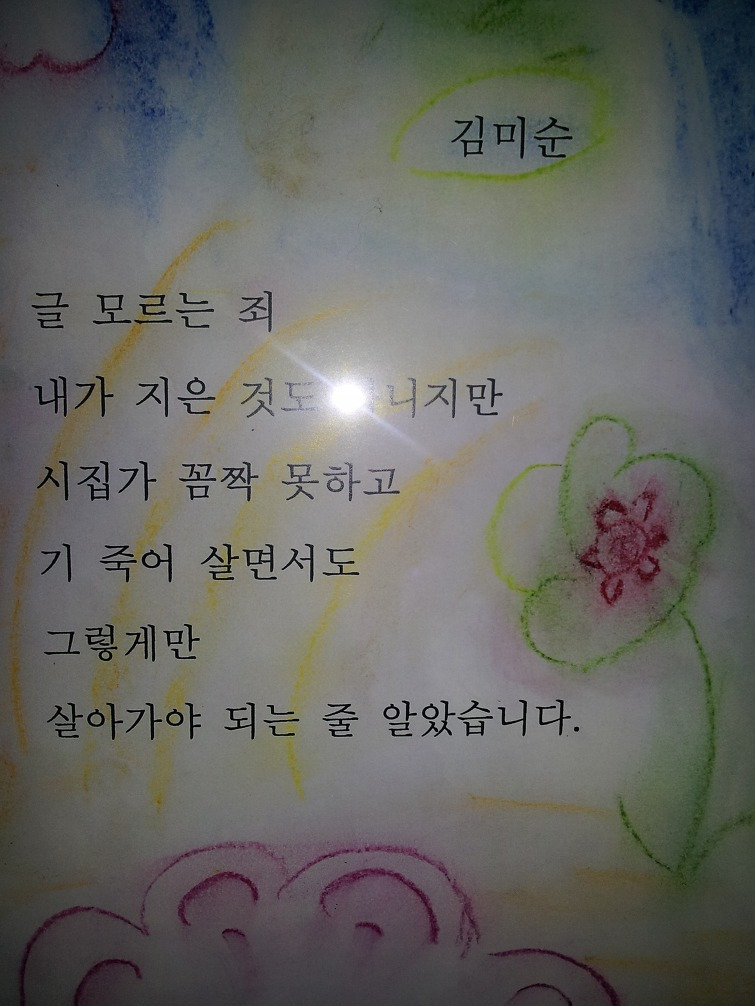 김미순
글 모르는 죄
내가 지은 것도 아니지만
시집가 꼼짝 못하고
기 죽어 살면서도
그렇게만
살아가야 되는 줄 알았습니다.